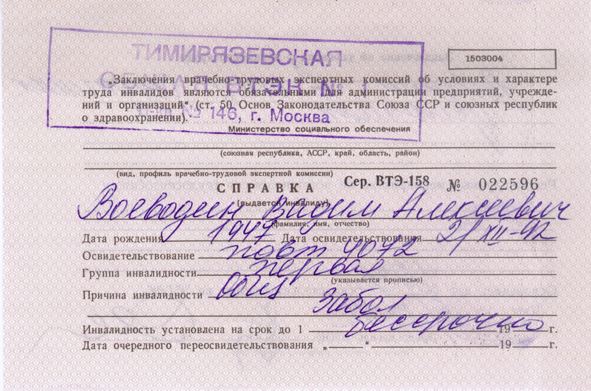 ТИМИРЯЗЕВСКАЯ
1503004
„Заключения врачебно-трудовых экспертных комиссий об условиях и характере
труда инвалидов являются обязательными для администрации предприятий, учрежде-
ний и организаций" (ст. 50 Основ Законодательства Союза ССР и союзных республик
о здравоохранении).
№ 146, г. Москва
Министерство социального обеспечения
(союзная республика, АССР, край, область, район)
(вид, профиль врачебно-трудовой экспертной комиссии)
СПРАВКА Сер. ВТЭ-158 № 022596
(выдается инвалиду)
Воеводин Вадим Алексеевич
(фамилия, имя, отчество)
Дата рождения 1947 Дата освидетельствования 21/XII-92
Освидетельствование повт 4072
Группа инвалидности первая
(указывается прописью)
Причина инвалидности общ забол
Инвалидность установлена на срок до 1 бессрочно 19 г.
Дата очередного переосвидетельствования „ " 19 г.